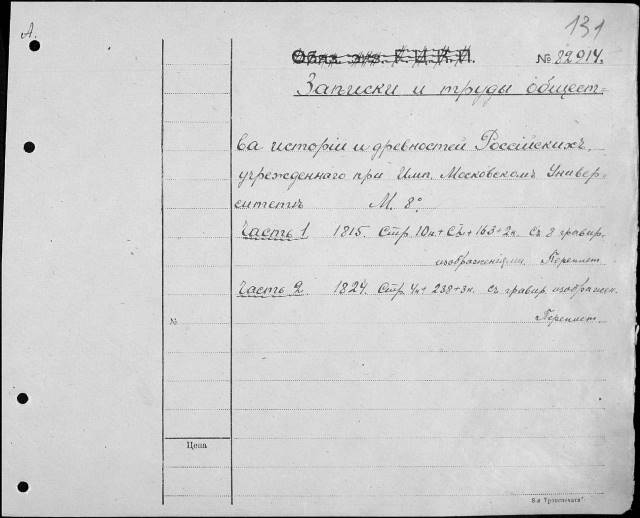 А.
131
№ 82914.
Записки и труды общест-
ва исторіи и древностей Россійскихъ,
учрежденнаго при Имп. Московскомъ Универ-
ситетѣ М. 8°.
Часть 1 1815. Стр. 10н. + + 163 + 2н. Съ 8 гравир.
изображеніями. Переплет.
Часть 2 1824. Стр. 4н + 238 + 3н. Съ гравир. изображен.
Переплет.
№
Цена